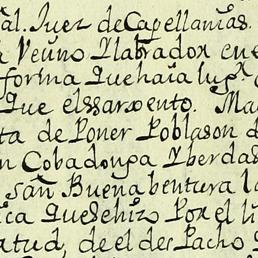 al. Juez de Capellanias.
a Veuno Ylabrador cue
forma Quehaia lugr. c
Que elssarxento. Ma
ta de Poner Poblason d
n Cobadonga Yberdas
san Buena bentura la
ica Quesehizo Por el
atud, de el des Pacho